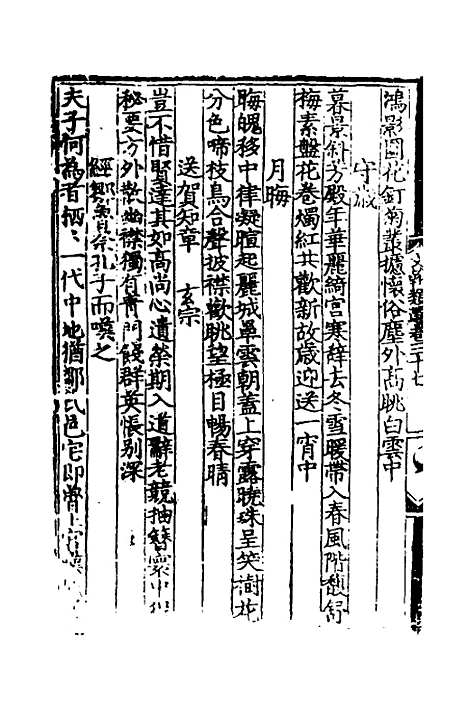 鴻影圓花釘菊叢攄懷俗塵外高眺白雲中
守歲
暮景斜芳殿年華麗綺宮寒辭去冬雪暖帶入春風階馥舒
梅素盤花卷燭紅共歡新故歲迎送一宵中
月晦
晦魄移中律凝暄起麗城罩雲朝蓋上穿露曉珠呈笑樹花
分色啼枝鳥合聲披襟歡眺望極目暢春晴
送賀知章 玄宗
豈不惜賢達其如高尚心遺榮期入道辭老競抽簪寰中得
秘要方外散幽襟獨有青門餞群英悵别深
經鄒魯祭孔子而嘆之
夫子何為者栖〻一代中地猶鄒氏邑宅即魯王宮嘆
文翰類選卷三十七